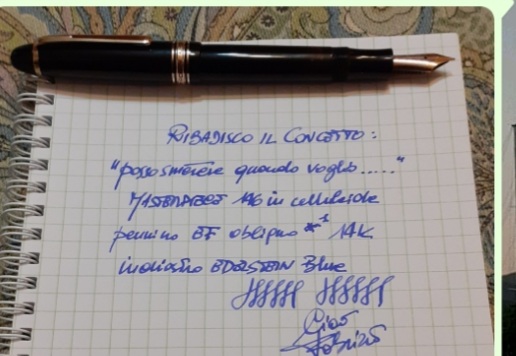 RIBADISCO IL CONCETTO:
"posso smettere quando voglio....."
146 in celluloide
pennino EF obliquo *¹ 14K
inchiostro EDELSTEIN Blue
Ciao
Fabrizio